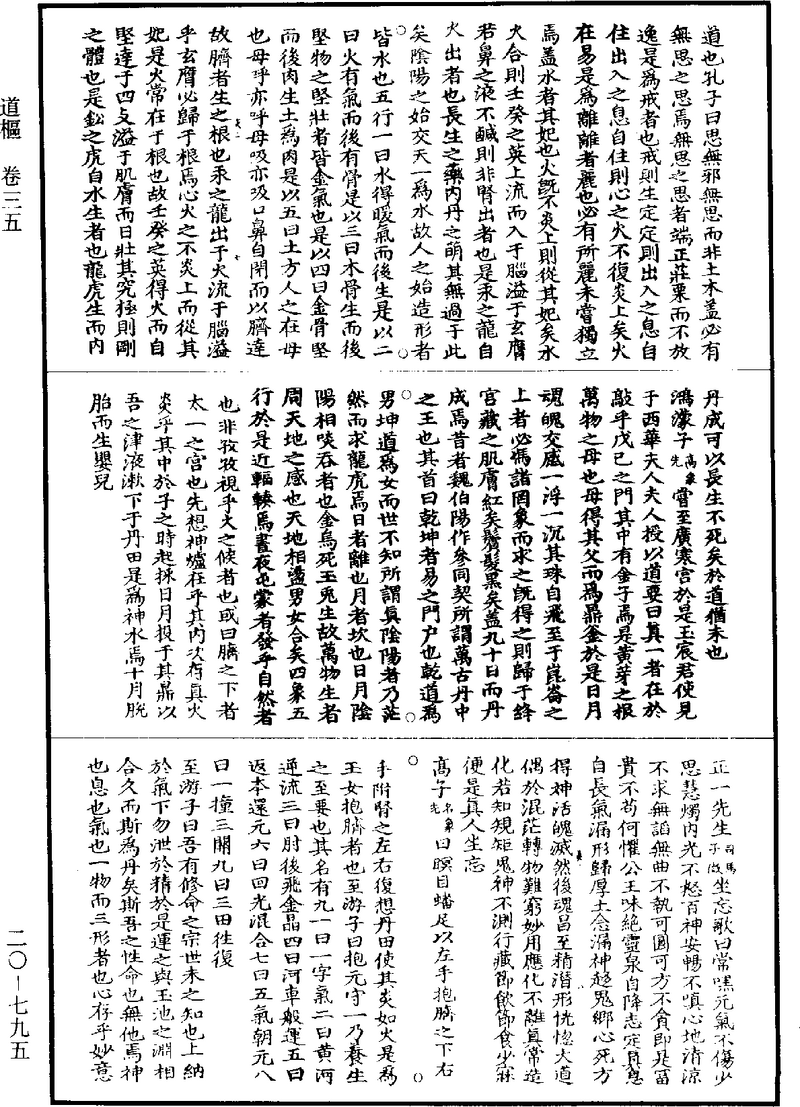 道樞　卷三五
二〇－七九五
道也孔子曰思無邪無思而非土木蓋必有
無思之思焉無思之思者端正莊栗而不放
逸是爲戒者也戒則生定定則出入之息自
住出入之息自住則心之火不復炎上矣火
在易是爲離離者麗也必有所麗未嘗獨立
焉蓋水者其妃也火旣不炎上則從其妃矣水
火合則壬癸之英上流而入于腦溢于玄膺
若鼻之液不鹹則非腎出者也是汞之龍自
火出者也長生之藥內丹之萌其無過于此
矣陰陽之始交天一爲水故人之始造形者
皆水也五行一曰水得暖氣而後生是以二
曰火有氣而後有骨是以三曰木骨生而後
堅物之堅壯者皆金氣也是以四曰金骨堅
而後肉生土爲肉是以五曰土方人之在母
也母呼亦呼母吸亦吸口鼻自閉而以臍達
故臍者生之根也汞之龍出于火流于腦溢
乎玄膺必歸于根焉心火之不炎上而從其
妃是火常在于根也故壬癸之英得火而自
堅達于四支溢于肌膚而日壯其究極則剛
之體也是鉛之虎自水生者也龍虎生而內
丹成可以長生不死矣於道猶未也
鴻濛子高象先嘗至廣寒宮於是玉宸君使見
于西華夫人夫人授以道要曰真一者在於
敲乎戊巳之門其中有金子焉是黃芽之根
萬物之母也母得其父而爲鼎釜於是日月
魂魄交感一浮一沉其珠自飛至于崑崙之
上者必馮諸罔象而求之旣得之則歸于絳
宮藏之肌膚紅矣鬚髮黑矣蓋九十日而丹
成焉昔者魏伯陽作參同契所謂萬古丹中
之王也其首曰乾坤者易之門户也乾道爲
男坤道爲女而世不知所謂真陰陽者乃茫
然而求龍虎焉日者離也月者坎也日月陰
陽相啖吞者也金烏死玉兔生故萬物生者
周天地之感也天地相盪男女合矣四象五
行於是近輻輳焉晝夜屯蒙者發乎自然者
也非孜孜視乎火之候者也或曰臍之下者
太一之宮也先想神爐在乎其內次存真火
炎乎其中於子之時起採日月投于其鼎以
吾之津液漱下于丹田是爲神水焉十月脫
胎而生嬰兒
正一先生司馬子微坐忘歌曰常嘿元氣不傷少
思慧燭內光不怒百神安暢不嗔心地清涼
不求無諂無曲不執可圓可方不貪即是富
貴不苟何懼公王味絕靈泉自降志定真息
自長氣漏形歸厚土念漏神趍鬼鄉心死方
得神活魄滅然後魂昌至精潛形恍惚大道
偶於混茫轉物難窮妙用應化不離真常造
化若知規矩鬼神不測行藏節飲節食少寐
便是真人坐忘
高子名象先曰瞑目蟠足以左手抱臍之下右
手附腎之左右復想丹田使其炎如火是爲
玉女抱臍者也至游子曰抱元守一乃養生
之至要也其名有九一曰一字氣二曰黃河
逆流三曰肘後飛金晶四曰河車般運五曰
返本還元六曰回光混合七曰五氣朝元八
曰一撞三關九曰三田往復
至游子曰吾有修命之宗世未之知也上納
於氣下勿泄於精於是運之與玉池之淵相
合久而斯爲丹矣斯吾之性命也無他焉神
也息也氣也一物而三形者也心存乎妙意